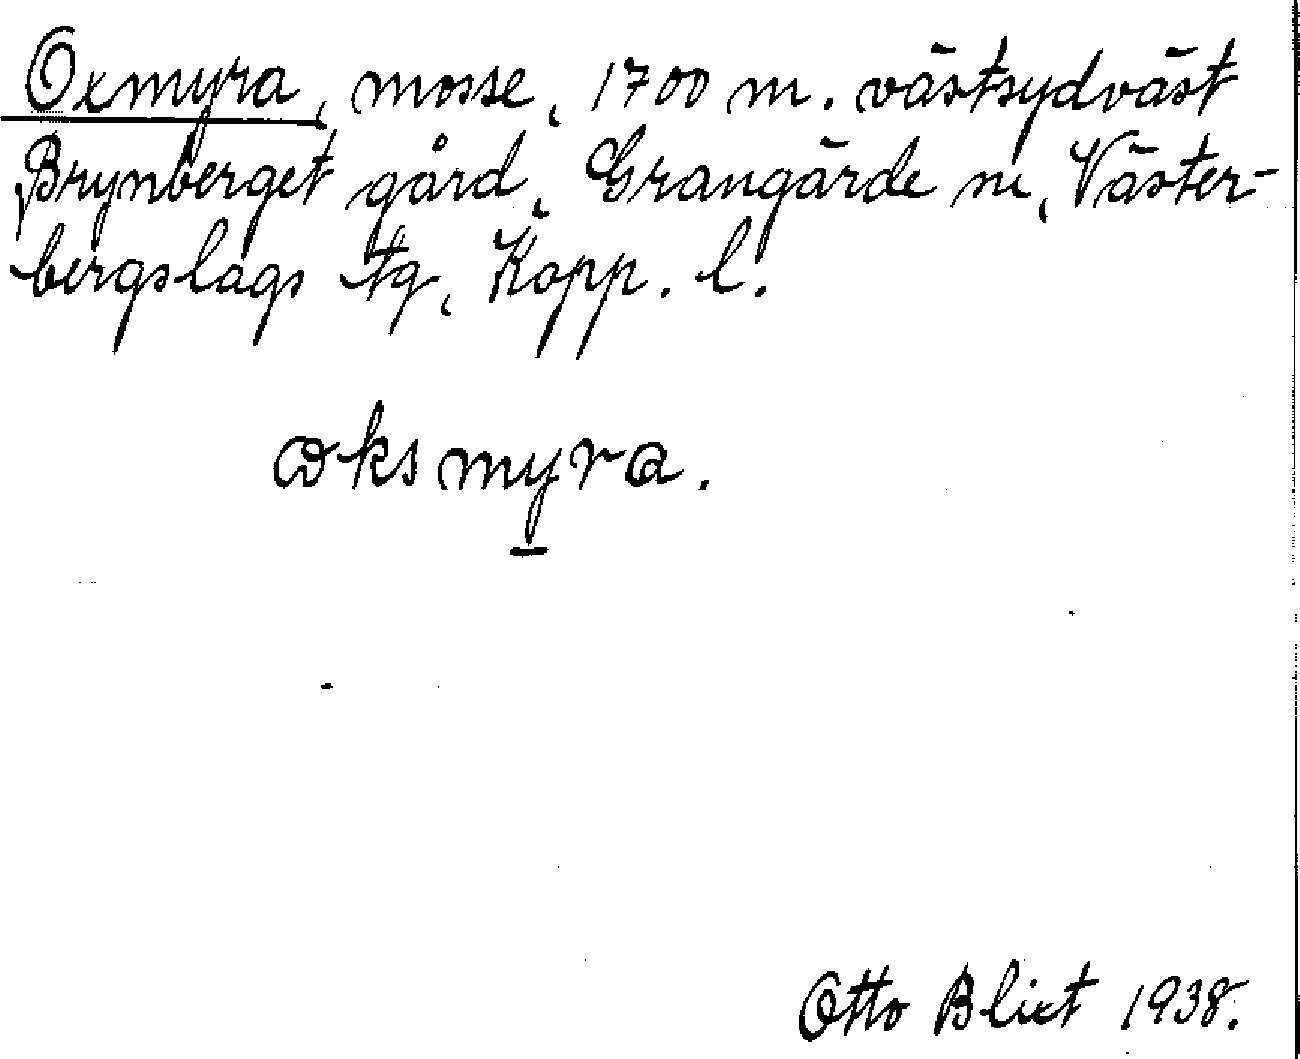 Oxmyra, mosse, 1700 m. västsydväst
Brynberget gård, Grangärde sn, Väster-
bergslags tg, Kopp. l.
oksmyra.
Otto Blixt 1938.